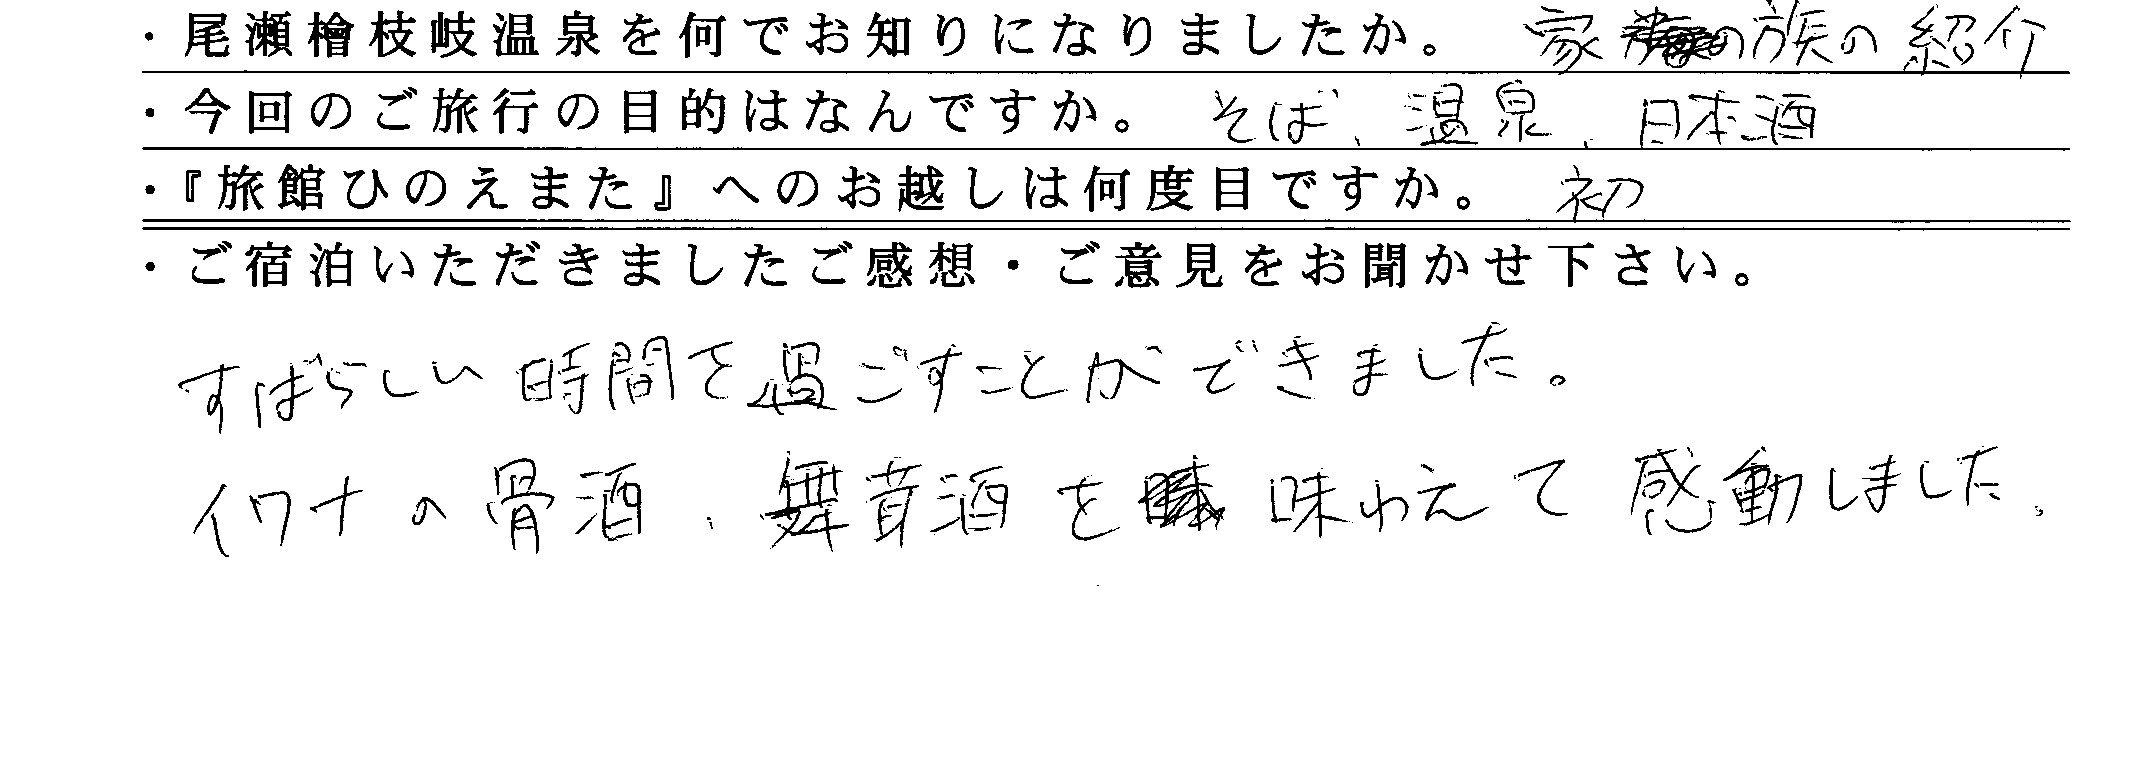 ・尾瀬檜枝岐温泉を何でお知りになりましたか。 家族の紹介
・今回のご旅行の目的はなんですか。 そば、温泉、日本酒
・『旅館ひのえまた』へのお越しは何度目ですか。 初
・ご宿泊いただきましたご感想・ご意見をお聞かせ下さい。
すばらしい時間を過ごすことができました。
イワナの骨酒、舞茸酒を味わえて感動しました。